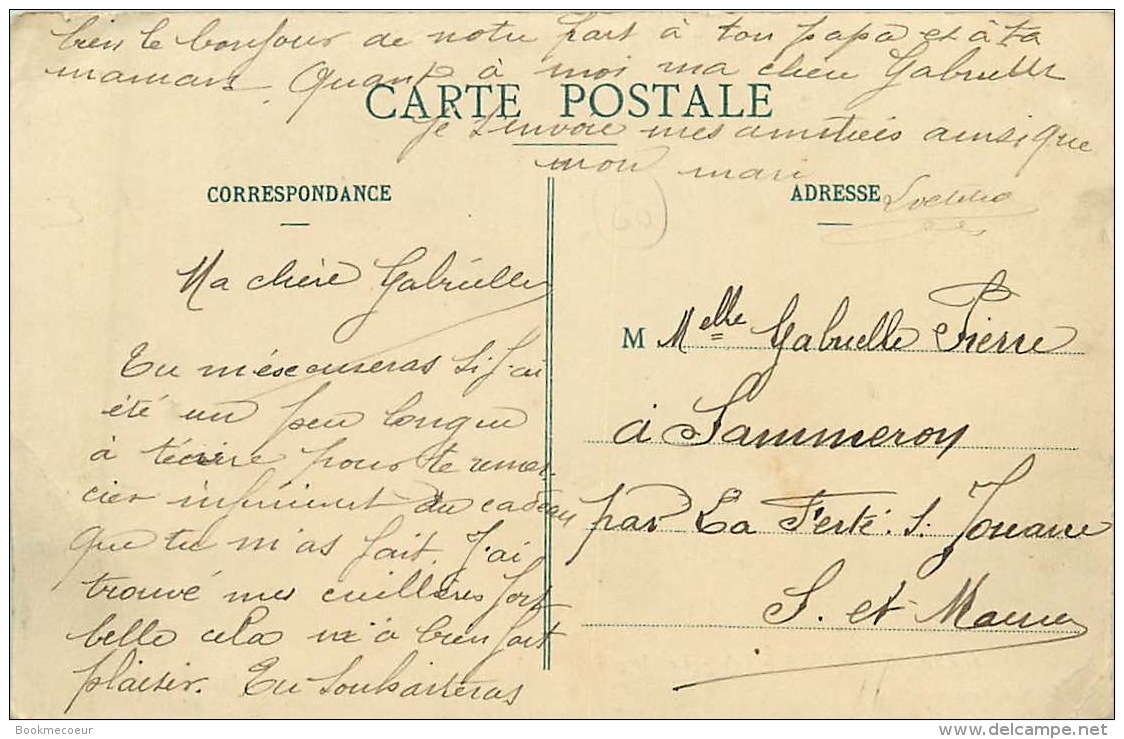 bien le bonjour de notre part à ton papa et à ta
maman. Quant à moi ma chere Gabrielle
CARTE POSTALE
je t'envoie mes amitiés ainsi que
mon mari
CORRESPONDANCE
ADRESSE
50
Ma chère Gabrielle
Tu m'éxcuseras si j'ai
été un peu longue
à técrire pour te remer-
cier infiniment du cadeau
que tu m'as fait. J'ai
trouvé mes cuillères fort
belle cela m'a bien fait
plaisir. Tu souhaiteras
M Melle Gabrielle Pierre
à Sammeron
par La Ferté. s. Jouarre
S. et Marne
Bookmecoeur
www.delcampe.net